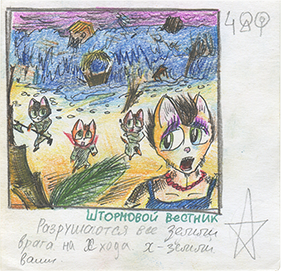 4
ШТОРМОВОЙ ВЕСТНИК
Разрушаются все земли
врага на X хода. X - земли
ваши.